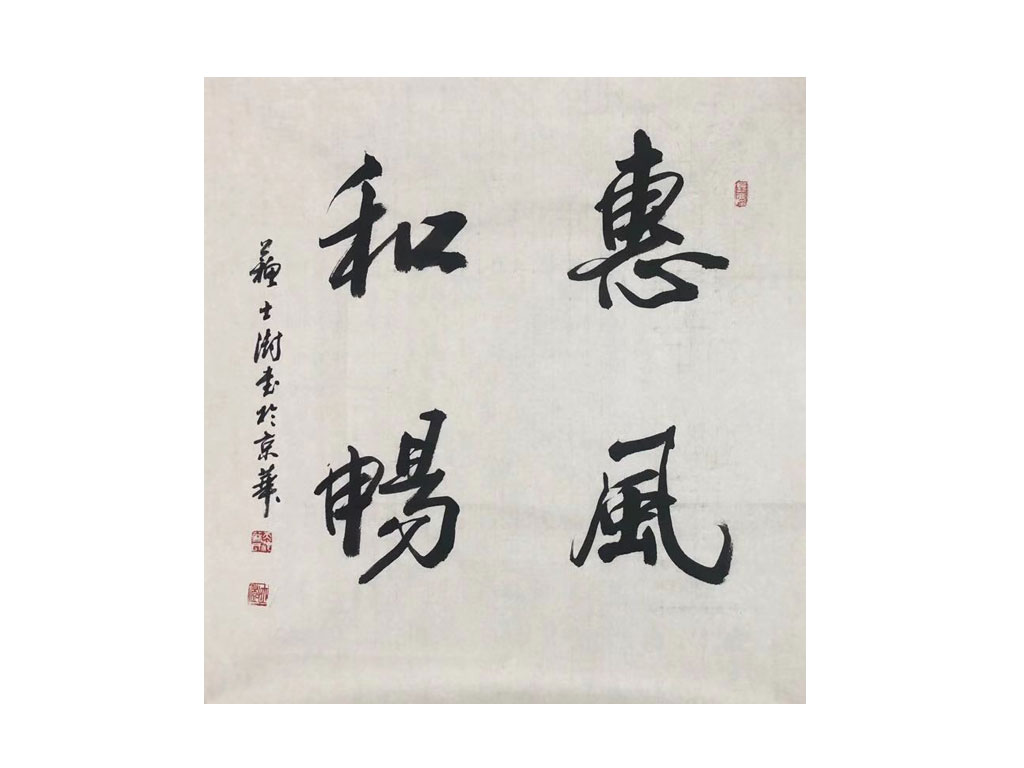 惠風
和暢
蘇士澍書於京華